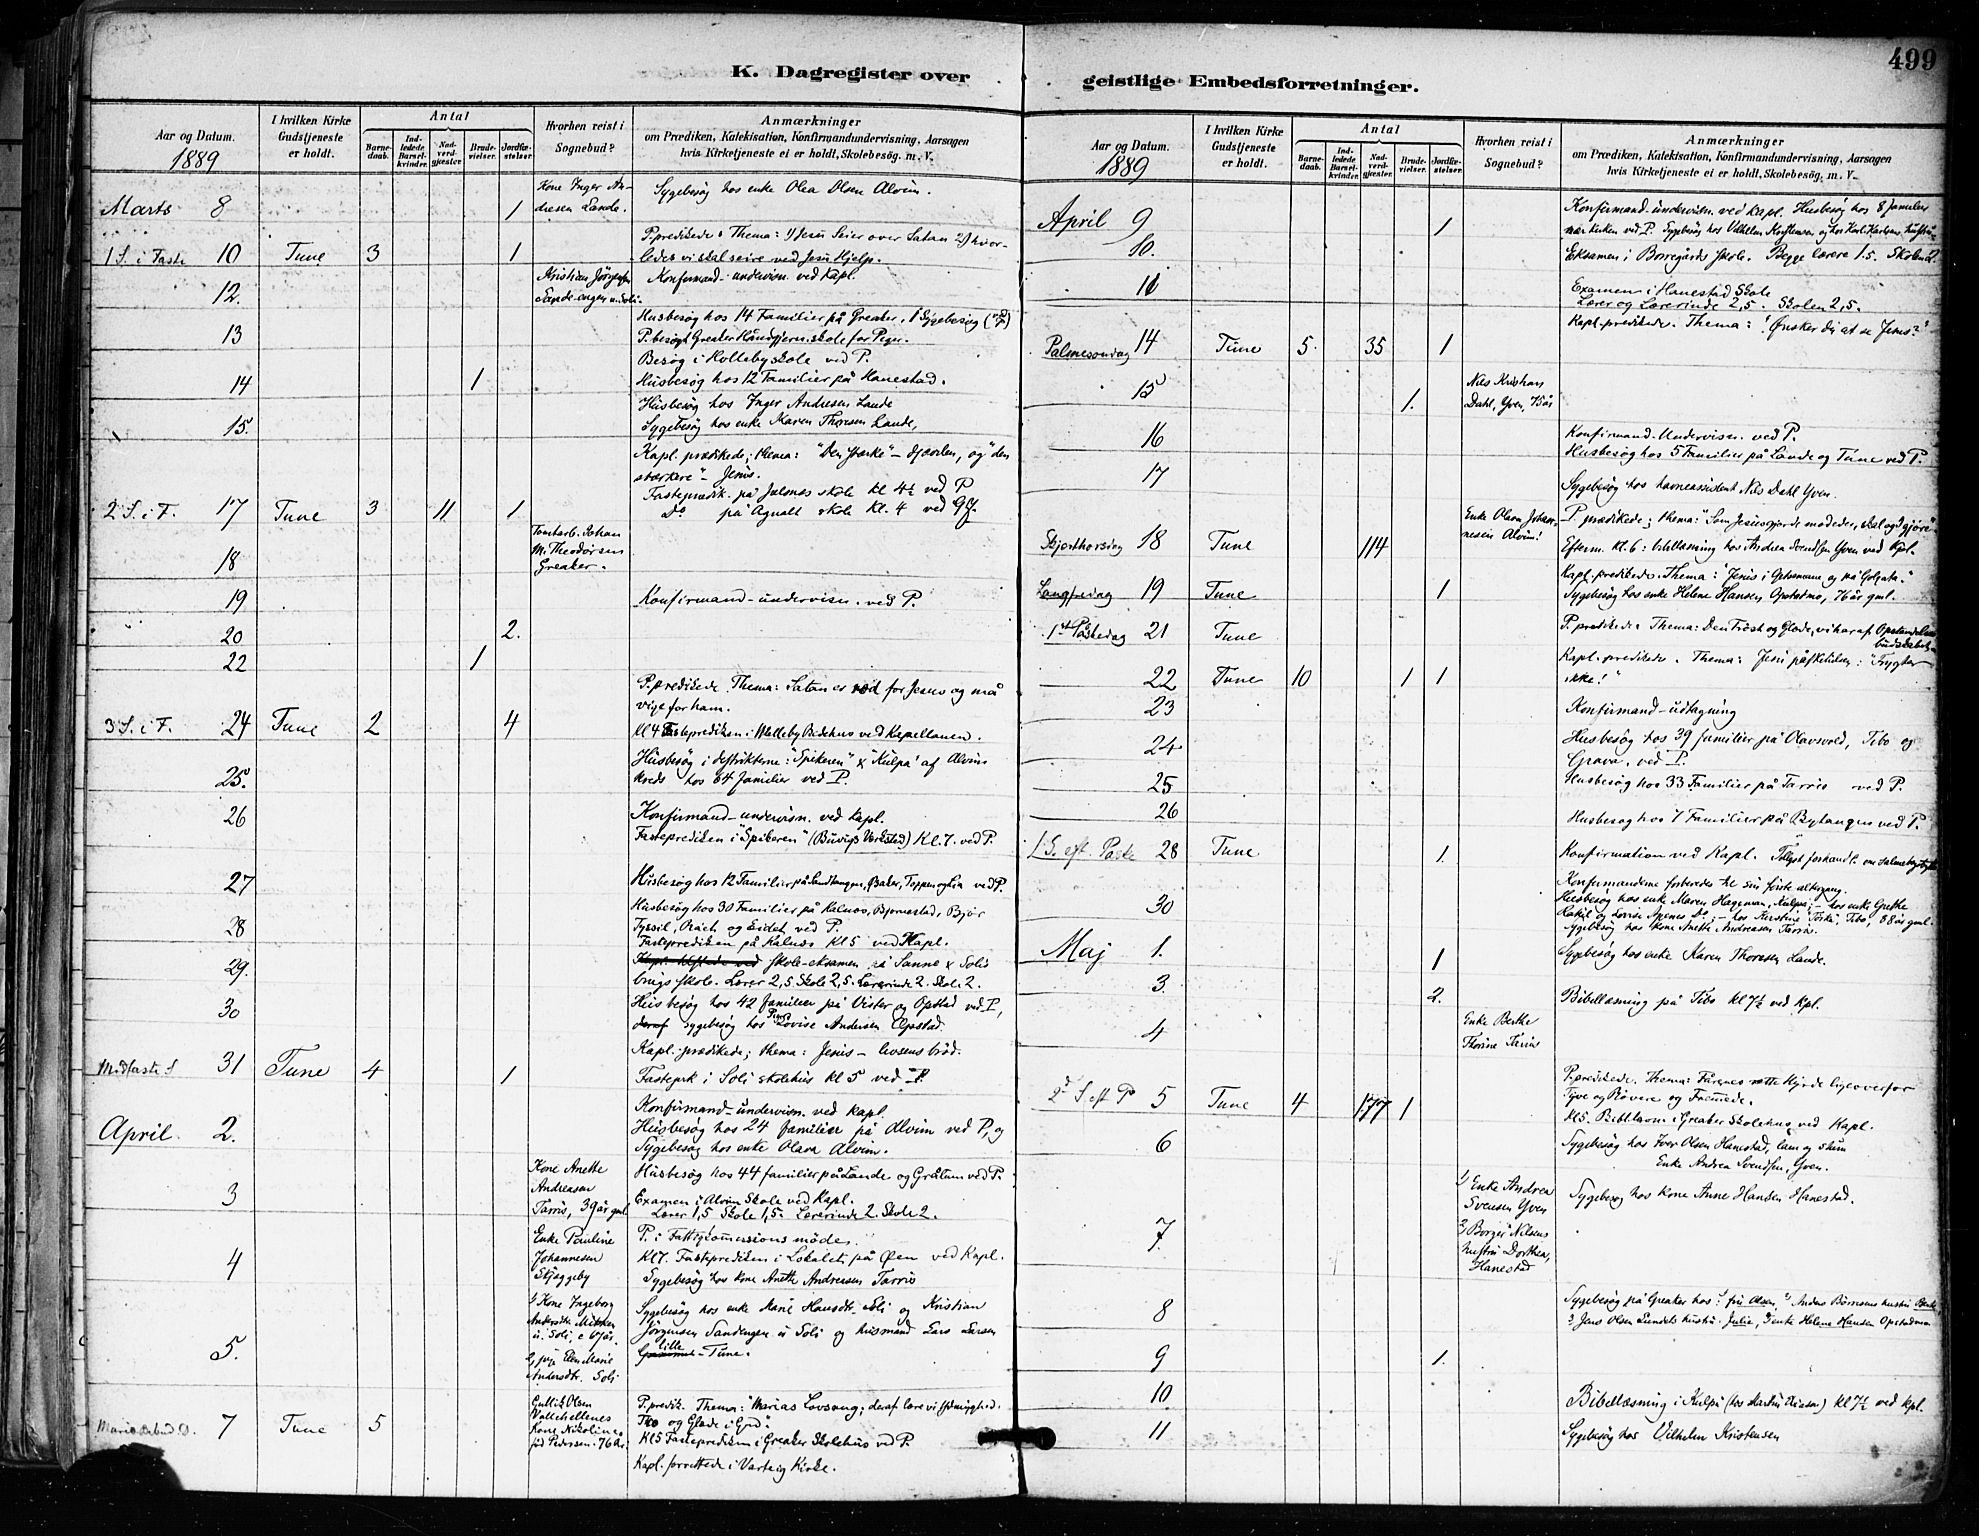 499
K. Dagregister over
geistlige Embedsforretninger.
Aar og Datum.
1889
I hvilken Kirke Gudstjeneste er holdt.
Antal
Barnedaab.
Indledede Barselkvinder.
Nadverdgjester.
Brudevielser.
Jordfæstelser.
Hvorhen reist i Sognebud?
Anmærkninger
om Prædiken, Katekisation, Konfirmandundervisning, Aarsagen
hvis Kirketjeneste ei er holdt, Skolebesøg. m. V.
Marts 8 1 Kone Inger Andresen Lande. Sygebesøg hos enke Olea Olsen Alvim.
1 S. i Faste 10 Tune 3 1 P. predikede: Thema: 1) Jesu Seier over Satan 2) hvor-
ledes vi skal seire ved Jesu Hjelp.
12. Kristian Jørgensen Konfirmand-undervisn. ved Kapl.
Husbesøg hos 14 Familier på Greaker, 1 Sygebesøg (ved P)
13 P. besøgt Greaker skole for Piger.
Besøg i Kollebyskole ved P.
14 1 Husbesøg hos 12 Familier på Hanestad.
Husbesøg hos Inger Andresen Lande
15. Sygebesøg hos enke Maren Thoresen Lande,
Kapl. prædikede; thema: "Den stærke" – djævlen, og "den
stærkere" – Jesus.
Fasteprædik. på skole kl 4½ ved P
2 S. i F. 17 Tune 3 11 1 Do på Agnalt skole Kl. 4 ved
18 Tomtarb. Johan M. Theodorsen Greaker.
19 Konfirmand-undervisn. ved P.
20 2.
22 1
P. predikede. Thema: Satan er ræd for Jesus og må
vige for ham.
3 S. i F. 24 Tune 2 4 Kl 4 Fasteprediken i Bedehus ved Kapellanen.
Husbesøg i distrikterne: "Spikeren" & "Kulpa" af Alvim
25. kreds hos 64 familier ved P.
26 Konfirmand-undervisn. ved Kapl.
Fasteprediken i "Spikeren" (Verksted) Kl. 7. ved P.
27 Husbesøg hos 12 Familier på Sandtangen, Bakke, Toppen og Lia ved P.
Husbesøg hos 30 Familier på Kalnes, Bjørnestad, Bjør
28 og Eidet ved P.
Fasteprediken på Kalnes Kl 5 ved Kapl.
29. skole-eksamen på Sanne & Soli
brugs skole. Lærer 2,5 Skole 2,5. Lærerinde 2. Skole 2.
30 Husbesøg hos 42 familier på Vister og Opstad ved P,
deraf sygebesøg hos Lovise Andersen Opstad.
Kapl. prædikede; thema: Jesus – livsens brød.
Midfaste S 31 Tune 4 1 Fasteprk i Soli skolehus kl 5 ved P.
Konfirmand-undervisn. ved Kapl.
April. 2. Husbesøg hos 24 familier på Alvim ved P, og
Sygebesøg hos enke Olava Alvim.
3 Kone Anette Andreasen Tarris, 39 år gml. Husbesøg hos 44 familier på Lande og Grålum ved P.
Examen i Alvim Skole ved Kapl.
Lærer 1,5 Skole 1,5. Lærerinde 2. Skole 2.
4 Enke Pauline Johannesen Skjæggeby P. i Fattigcommissions møde.
Kl 7. Fasteprediken i Lokalet på Øen ved Kapl.
Sygebesøg hos kone Anette Andreasen Tarris
5. 1) Kone Ingeborg u. Soli, c 67 år. 2) Elen Marie Andersdtr. Soli Sygebesøg hos enke Marie Hansdtr. Soli og Kristian
Jørgensen Sandengen u Soli og husmand Lars Larsen
lille – Tune.
Mariæ bebud. D. 7 Tune 5 Gullik Olsen Kone Nikoline fød Pedersen. 76 år. P. predik. Thema: "Marias Lovsang; deraf lære vi Ydmyghed.
Tro og Glæde i Gud."
Kl 5 Fasteprediken i Greaker Skolehus ved P.
Kapl. forrettede i Varteig Kirke.
Aar og Datum.
1889
I hvilken Kirke Gudstjeneste er holdt.
Antal
Barnedaab.
Indledede Barselkvinder.
Nadverdgjester.
Brudevielser.
Jordfæstelser.
Hvorhen reist i Sognebud?
Anmærkninger
om Prædiken, Katekisation, Konfirmandundervisning, Aarsagen
hvis Kirketjeneste ei er holdt, Skolebesög. m. V.
April 9 1 Konfirmand-undervisn. ved Kapl. Husbesøg hos 8 familier
nær kirken ved P. Sygebesøg hos Vilhelm Kristensen og hos Karl Karlsens hustru
10. Eksamen i Borregårds Skole. Begge lærere 1.5. Skolen 2.
11 Examen i Hanestad Skole
Lærer og Lærerinde 2,5. Skolen 2,5.
Palmesøndag 14 Tune 5 35 1 Kapl. predikede. Thema: "Ønsker du at se Jesus?"
15 1. Nils Kristian Dahl, Yven, 75 år
16 Konfirmand-Undervisn. ved P.
Husbesøg hos 5 Familier på Lande og Tune ved P.
17 Sygebesøg hos havneassistent Nils Dahl Yven.
Skjærthorsdag 18 Tune 114 Enke Olava Johannesen Alvim! P. prædikede; thema: "Som Jesus gjorde mod eder, skal og I gjøre"
Efterm. Kl. 6: bibellæsning hos Andrea Svendsen Yven ved Kpl.
Langfredag 19 Tune 1 Kapl. predikede. Thema: "Jesus i Getsemane og på Golgata."
Sygebesøg hos enke Helene Hansen Opstadmo, 76 år gml.
1ste Påskedag 21 Tune P. predikede Thema: Den Trøst og Glæde, vi har af Opstandelsens
budskabet.
22 Tune 10 1 1 Kapl. predikede. Thema: Jesu påskehilsen: "Frygter
ikke!"
23 Konfirmand-udtagning
24 Husbesøg hos 39 familier på Olavsvold, Tibo og
Grava, ved P.
25 Husbesøg hos 33 Familier på Tarris ved P.
26 Husbesøg hos 7 Familier på Bytangen ved P.
1 S. eft. Paske 28 Tune 1. Konfirmation ved Kapl.
30 Konfirmanderne forberedes til sin første altergang.
Husbesøg hos enke Maren Hageman, Kulpa; – hos enke Grethe
Sygebesøg hos Kone Anette Andreasen Tarris.
Maj 1. 1 Sygebesøg hos enke Karen Thoresen Lande.
3. 2. Bibellæsning på Tibo kl 7½ ved Kpl.
4 Enke Berthe Thorine Tarris
2d S. eft P 5 Tune 4 177 1 P. predikede. Thema: Fårenes rette Hyrde ligeoverfor
Tyve og Røvere og Fremede.
Kl 5. Bibellæsn i Greaker Skolehus ved Kapl.
6 Sygebesøg hos Iver Olsen Hanestad, lam og stum
Enke Andrea Svendsen, Yven.
7. 1) Enke Andrea Svensen Yven 2) Borger Nilsens hustru Dorthea, Hanestad Sygebesøg hos kone Anne Hansen Hanestad.
8 Sygebesøg på Greaker hos: 1 fru Olsen, 2) Anders Børresens hustru
3 Jens Olsen Lundes hustru Julie, 3 enke Helene Hansen Opstadmoen
9 1.
10 Bibellæsning i Kulpe (hos Martin) kl 7½ ved kpl.
11 Sygebesøg hos Vilhelm Kristensen